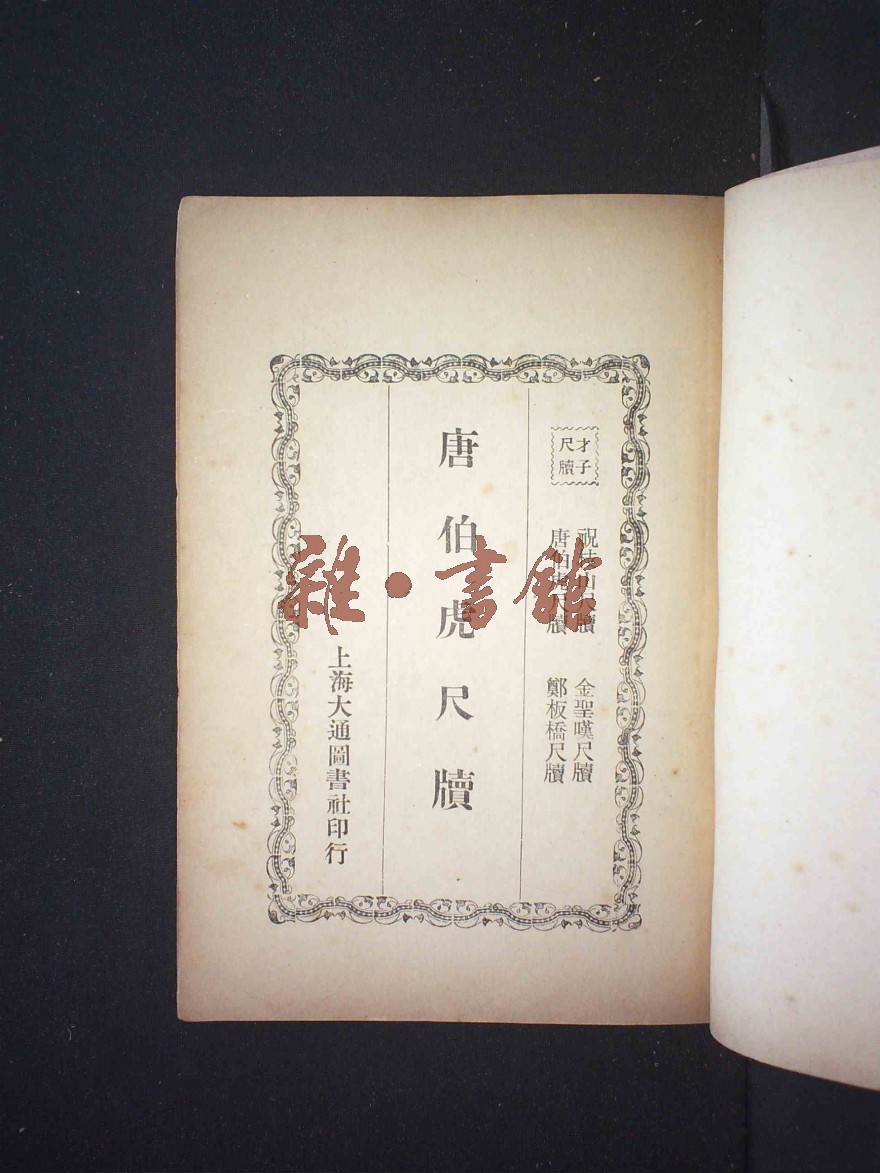 才子
尺牘
祝枝山尺牘
金聖嘆尺牘
唐伯虎尺牘
鄭板橋尺牘
唐伯虎尺牘
上海大通圖書社印行
雜·書館